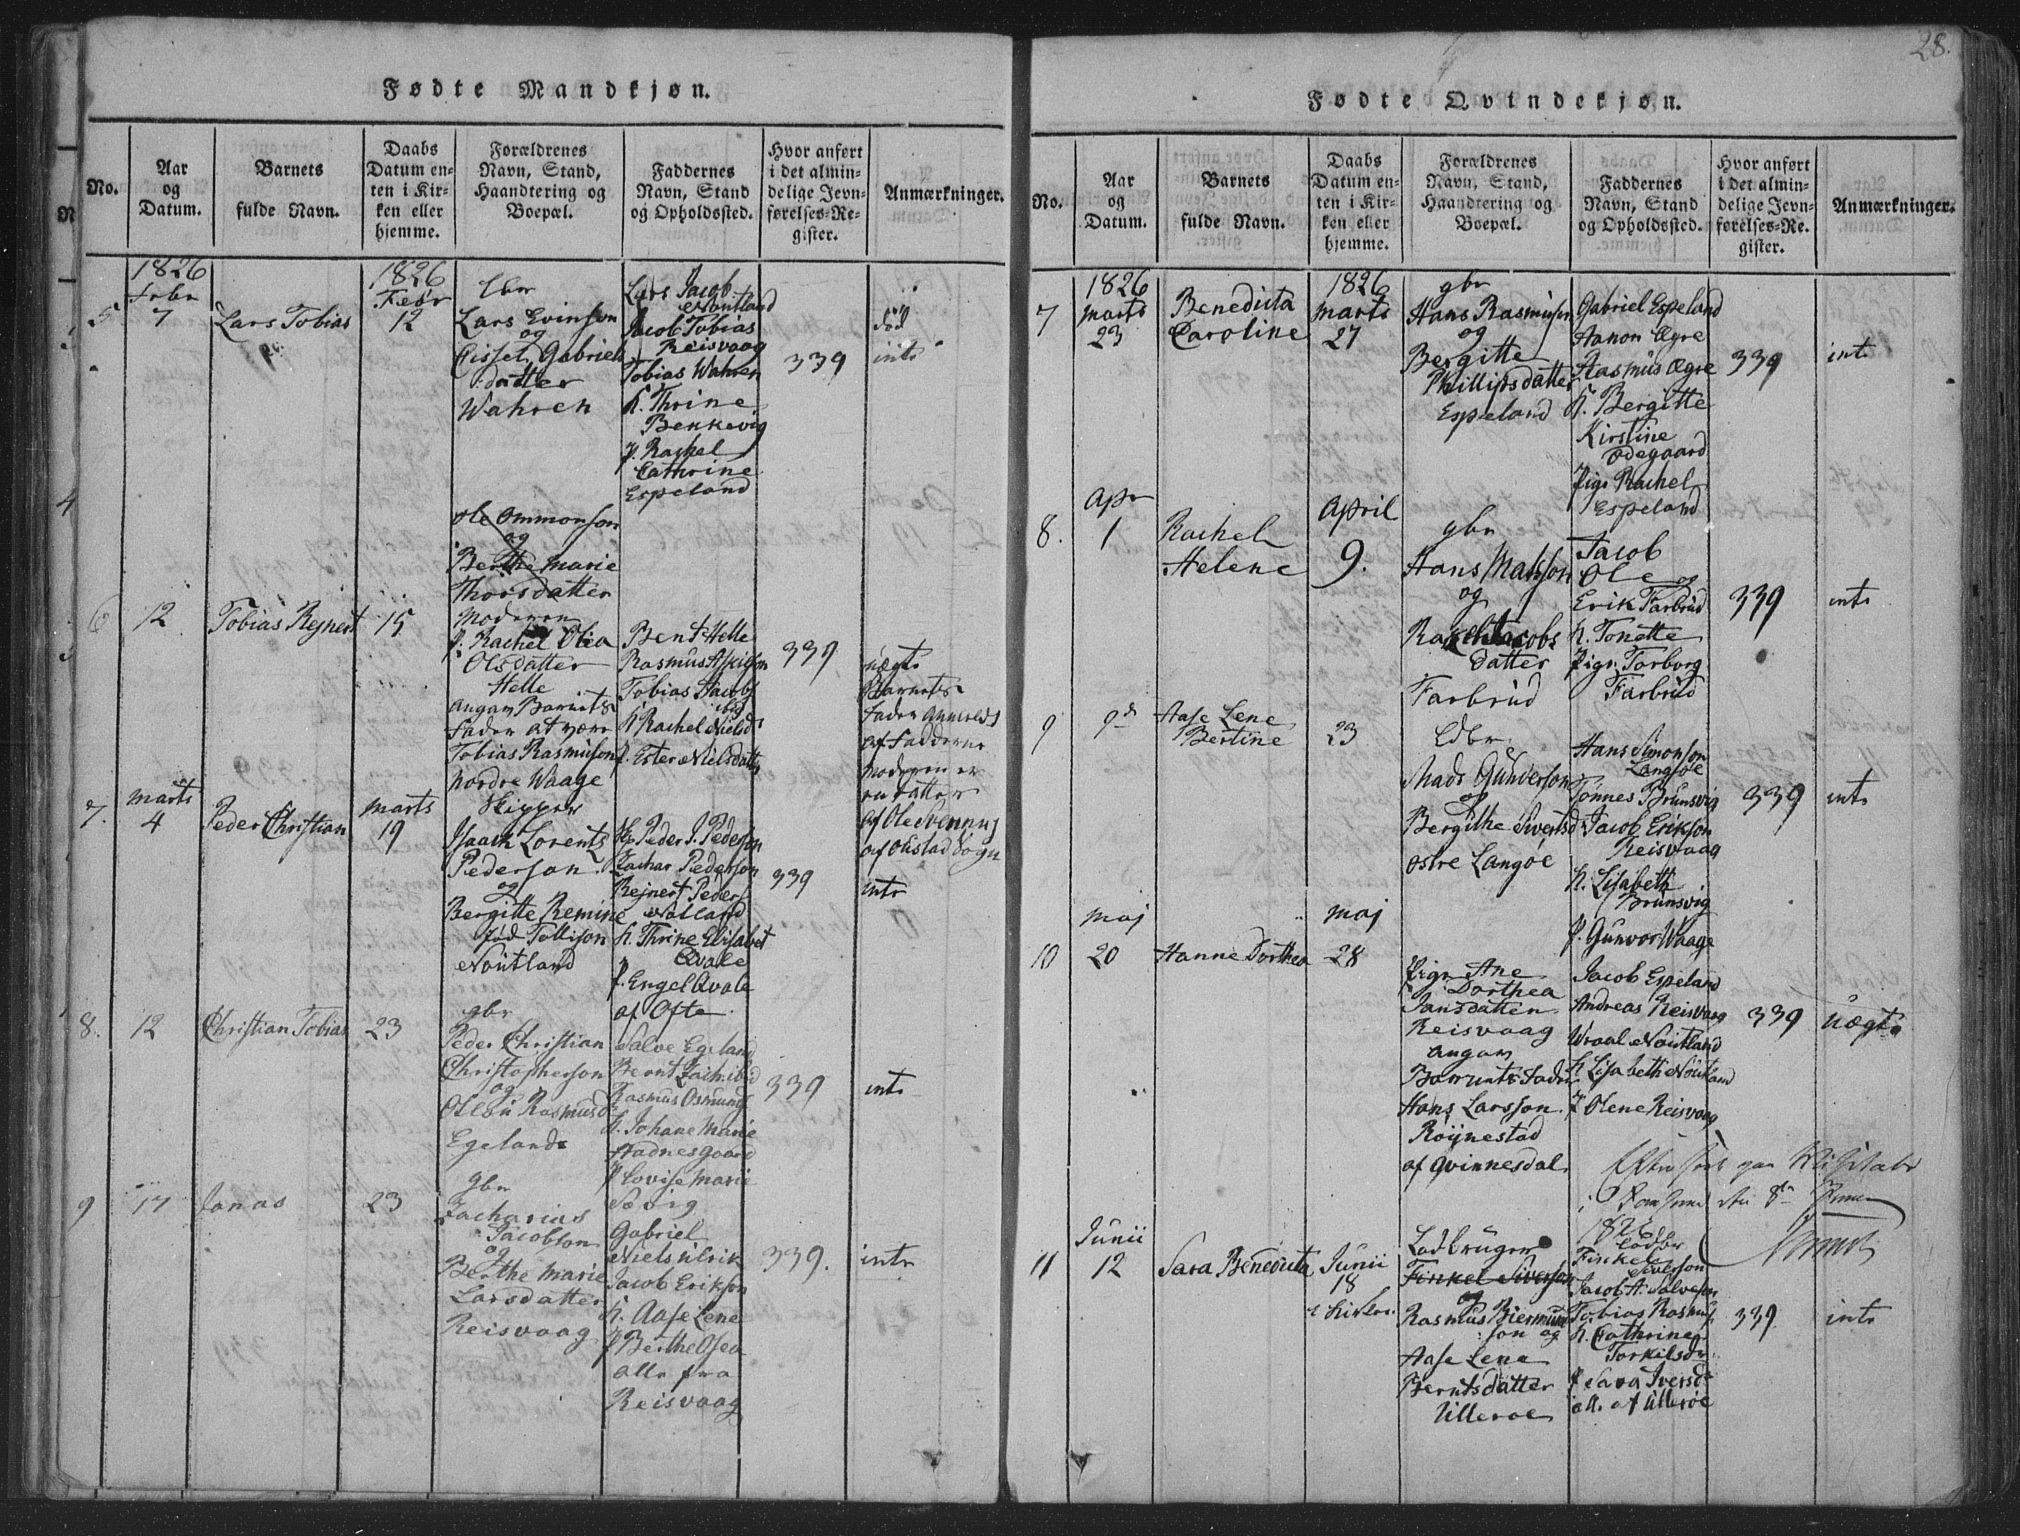 28.
Fødte Mandkjøn.
No.
Aar
og
Datum.
Barnets
fulde Navn.
Daabs
Datum en-
ten i Kir-
ken eller
hjemme.
Forældrenes
Navn, Stand,
Haandtering og
Boepæl.
Faddernes
Navn, Stand
og Opholdssted.
Hvor anført
i det almin-
delige Jevn-
førelses-Re-
gister.
Anmærkninger.
1826
Febr
5
7
Lars Tobias
1826
Febr
12
Lars Evinson
og
Gabriels
datter
Wahren
Lars Jacob
Noutland
Jacob Tobias
Reisvaag
Tobias Wahren
k. Thrine
Benkevig
p. Rachel
Cathrine
Espeland
339
død
intr
6
12
Tobias Rejnert
15
Ole Ommonson
og
Berthe Marie
Thorsdatter
Moderen
p. Rachel Olea
Olsdatter
Helle
angav Barnets
Fader at være
Tobias Rasmuson
Nordre Waage
Skipper
Bent Helle
Rasmus Askildson
Tobias Jacobs
ibid
k Rachel Nielsd
p. Ester Nielsdatter
339
uægte
Barnets
Fader
af Fadderne
Moderen er
en Datter
af Ole Svennus
af sogn
7.
Marts
4
Peder Christian
Marts
19
Isaack Lorentz
Pederson
og
Bergitte Remine
fød Tollison
Noutland
Peder J. Pederson
Zachar Pederson
Rejnert Peders
Nolland
k. Thrine Elisabet
Qvale
p. Engel Qvale
af Ofte
339
intr
8.
12
Christian Tobias
23
gbr
Peder Christian
Christopherson
og
Rasmusdr
Egeland
Salve Egeland
Bernt Zach. ibid
Rasmus Osmunds
k. Johane Marie
Hadnesgaard
p Lovise Marie
339
intr
9
17
Jonas
23
gbr
Zacharias
Jacobson
og
Berthe Marie
Larsdatter
Reisvaag
Gabriel
Niels Ulrik
Jacob Erikson
k. Aase Lene
p Berthe Olsea
alle fra
Reisvaag
339.
intr
Fødte Qvindekjøn.
No.
Aar
og
Datum.
Barnets
fulde Navn.
Daabs
Datum en-
ten i Kir-
ken eller
hjemme.
Forældrenes
Navn, Stand,
Haandtering og
Boepæl.
Faddernes
Navn, Stand
og Opholdssted.
Hvor anført
i det almin-
delige Jevn-
førelses-Re-
gister.
Anmærkninger.
7
1826
Marts
23
Benedicta
Caroline
1826
Marts
27
gbr
Hans Rasmuson
og
Bergitte
Phillipsdatter
Espeland
Gabriel Espeland
Hanon Øgre
Rasmus Øgre
k. Bergitte
Kirstine
Ødegaard
Pige Rachel
Espeland
339
intr
8.
Apr
1
Rachel
Helene
April
9.
gbr
Hans Matsson
og
Rakel Jacobs
datter
Farbrud
Jacob
Ole og
Erik Farbrud
k. Tonette
Pige Torborg
Farbrud
339
intr
9
9d
Aase Lene
Bertine
23
Mads Gunderson
og
Bergithe Sivertsd
Østre Langøe
Hans Simonson
Langøe
Tønnes Brunsvig
Jacob Erikson
Reisvaag
k. Lisabeth
Brunsvig
p. Gunvor Waage
339
intr
10
Maj
20
Hanne Dorthea
Maj
28
Pige Ane
Dorthea
Jansdatter
Reisvaag
angav
Barnets Fader
Hans Larsson
Røynestad
af Qvinnesdal
Jacob Espeland
Andreas Reisvaag
Wraal Noutland
k Lisabeth Noutland
p Olene Reisvaag
339
Uægte
1826
11
Junii
12
Sara Benedicta
Junii
18
i kirken
Ladbruger
Finkel Siverson
og
Rasmus Biermund
son og
Aase Lene
Berntsdatter
Ullerøe
Finkel
Siverson
Jacob A. Salveson
Tobias Rasmus
k. Cathrine
Torkilsdr
p Sara Iversd
alle af Ullerøe
339
intr